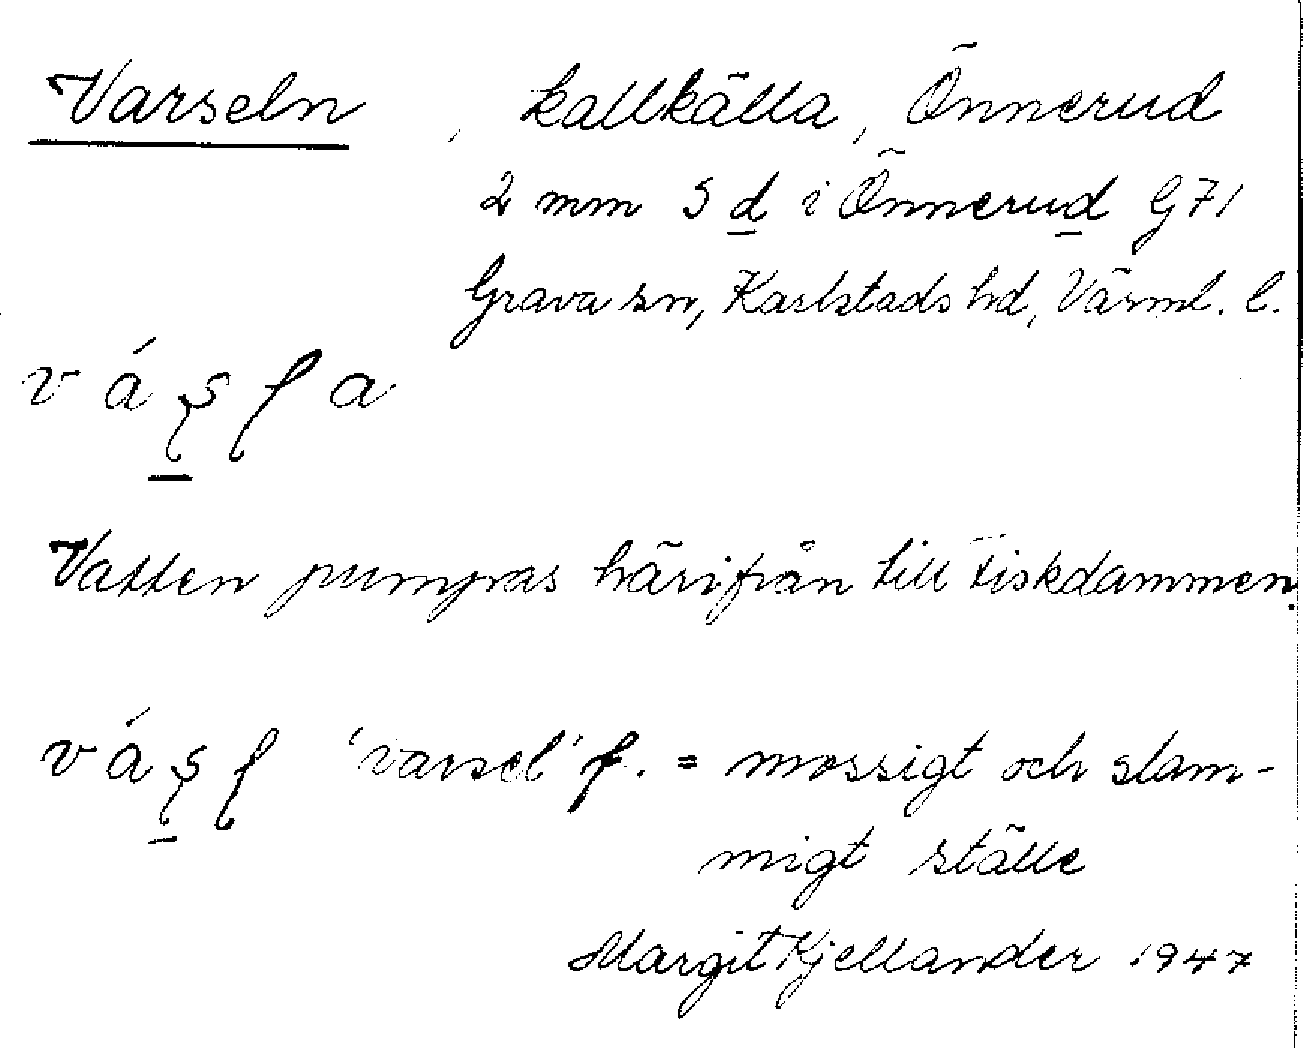 Varseln, kallkälla, Önnerud
2 mm S d i Önnerud G71
Grava sn, Karlstads hd, Värml. l.
Vatten pumpas härifrån till Fiskdammen.
'varsel' f. = mossigt och slam-
migt ställe
Margit Kjellander 1947